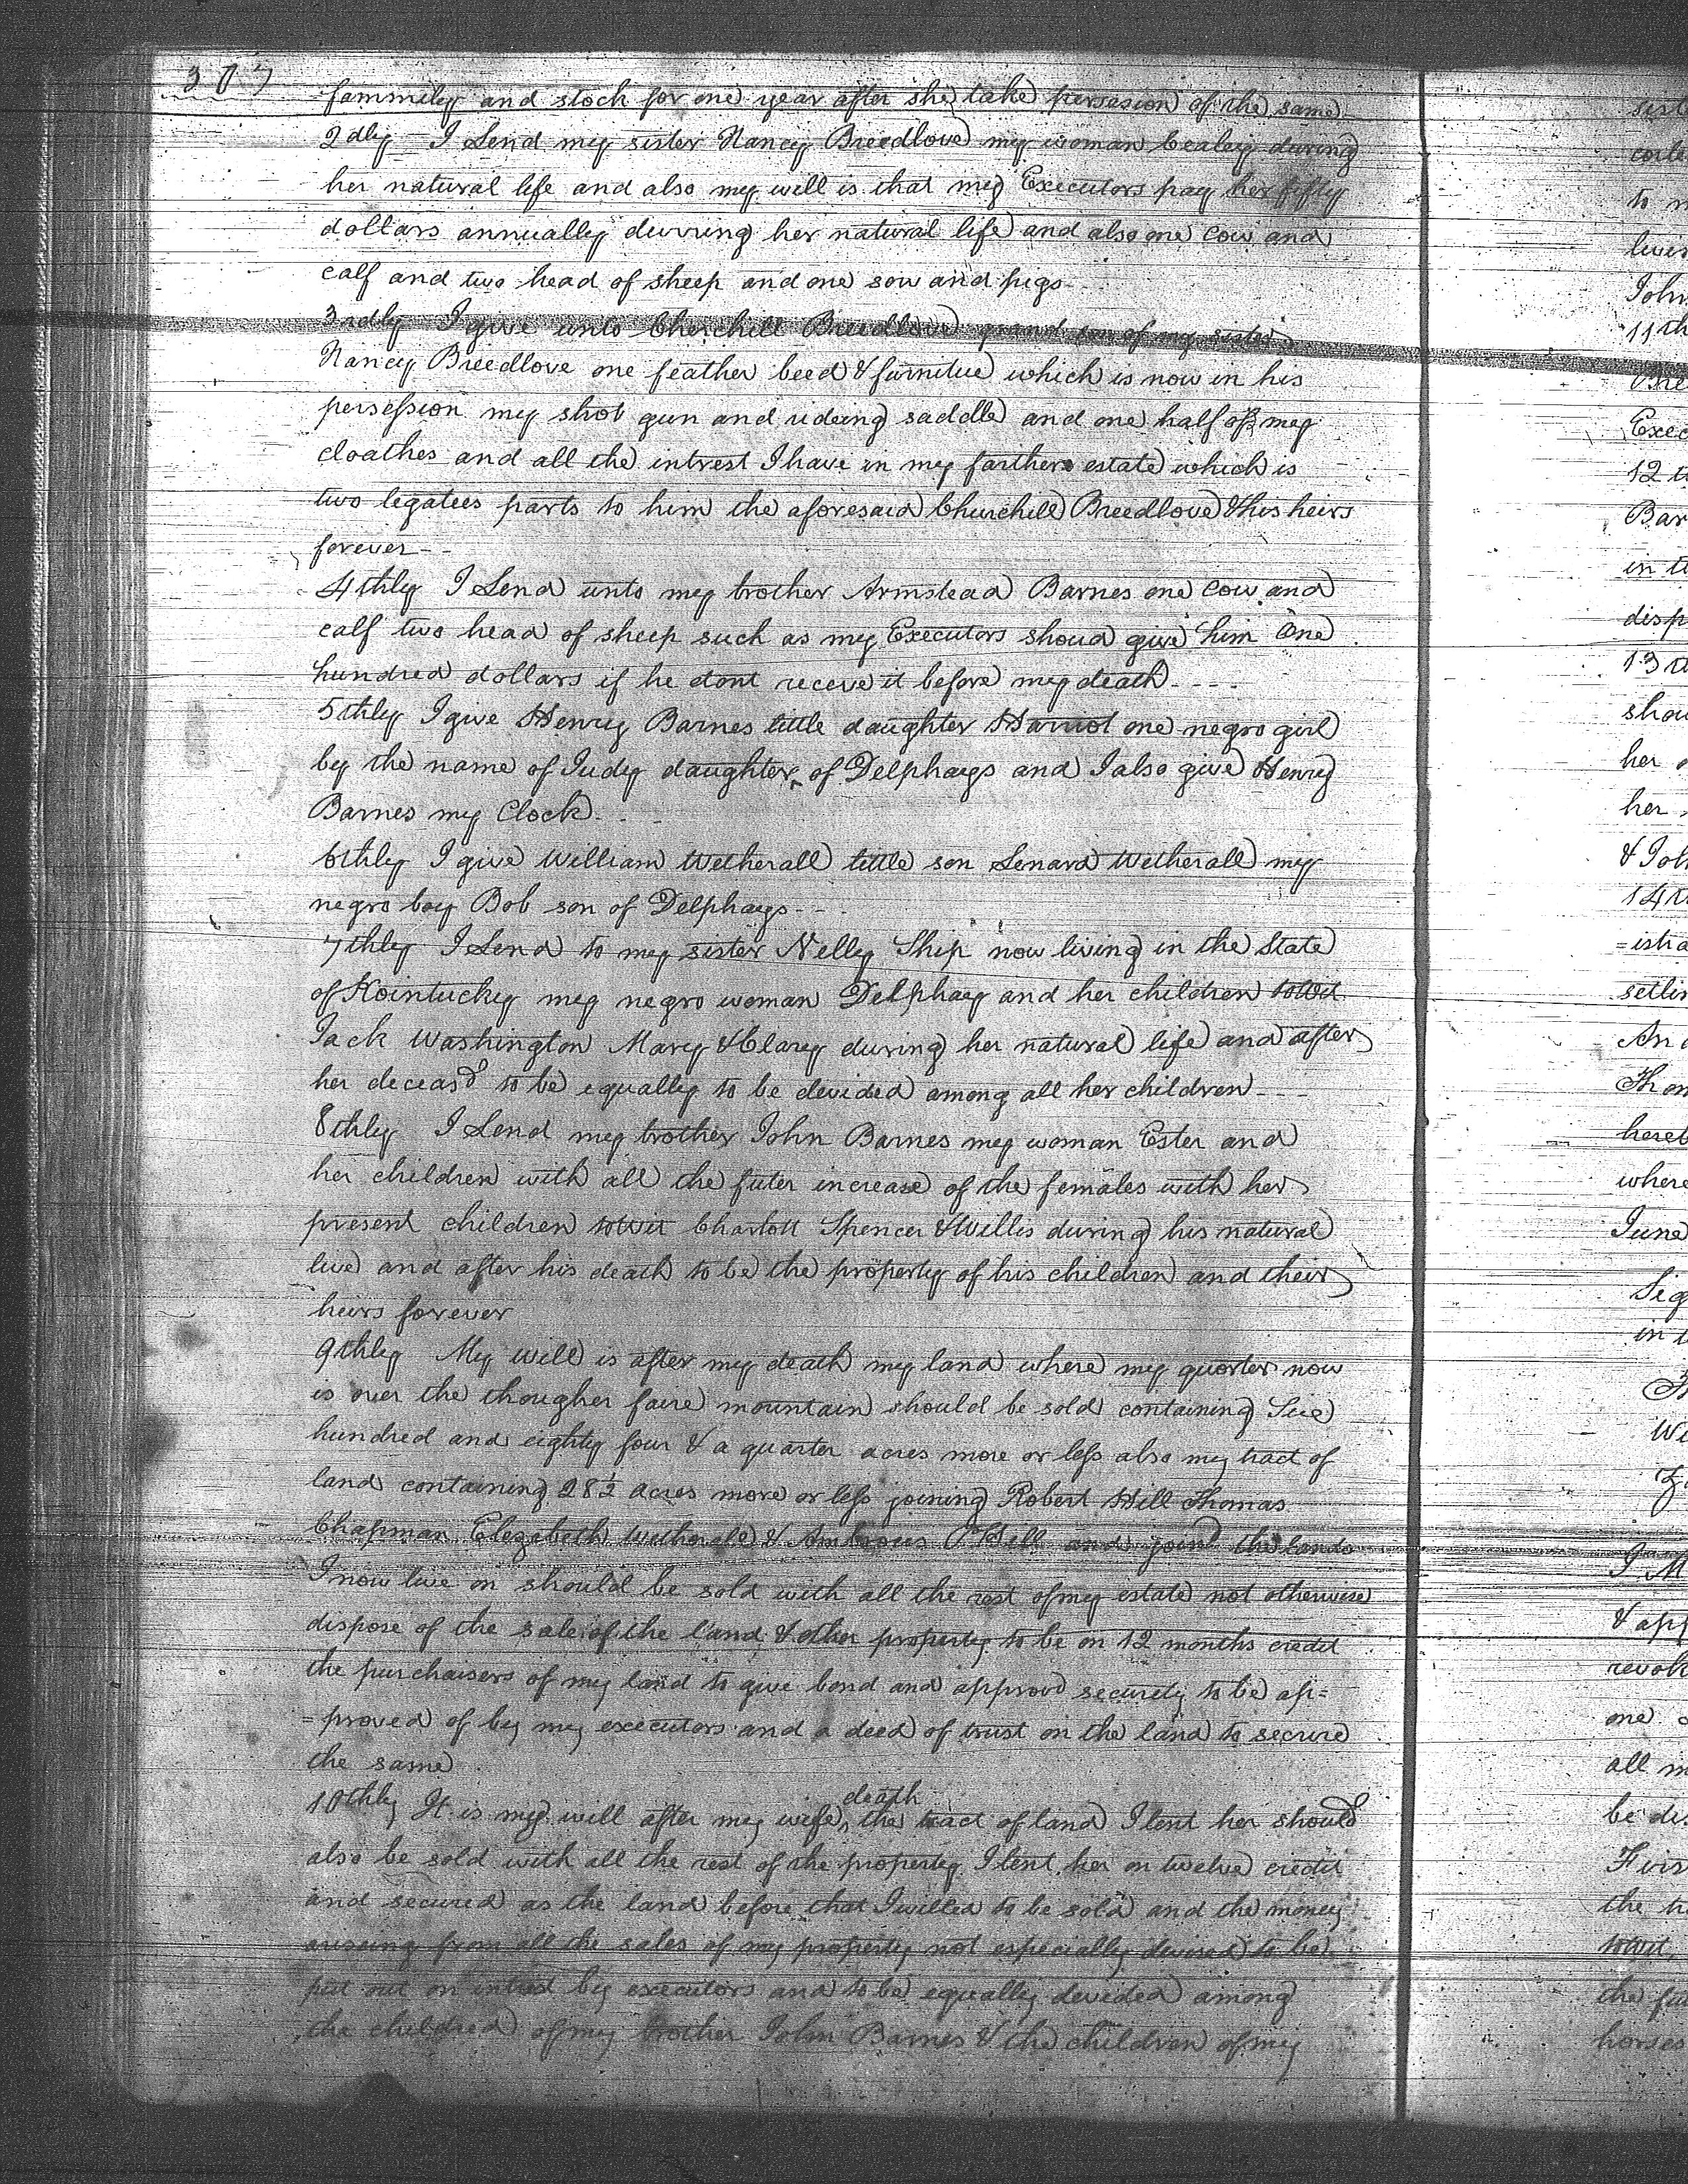 307
fammily and stock for one year after she take persesion of the same
2dly I Lend my sister Nancy Breedlove my woman Bealey during
her natural life and also my will is that my Executors pay her fifty
dollars annually durring her natural life and also one cow and
calf and two head of sheep and one sow and pigs
3rdly I give unto Churchill Breedlove grand son of my sister
Nancy Breedlove one feather beed & furnitue which is now in his
persession my shot gun and rideing saddle and one half of my
cloathes and all the intrest I have in my farthers estate which is
two legatees parts to him the aforesaid Churchill Breedlove & his heirs
forever--
4thly I Lend unto my brother Armstead Barnes one Cow and
calf two head of sheep such as my Executors shoud give him One
hundred dollars if he dont receve it before my death----
5thly I give Henry Barnes little daughter Harriot one negro girl
by the name of Judy daughter of Delphays and I also give Henry
Barnes my Clock--
6thly I give William Wetherall little son Lenard Wetherall my
negro boy Bob son of Delphays--
7thly I Lend to my sister Nelly Ship now living in the State
of Kointucky my negro woman Delphay and her children towit
Jack Washington Mary & Clary during her natural life and after
her deceasd to be equally to be devided among all her children---
8thly I Lend my brother John Barnes my woman Ester and
her children with all the futer increase of the females with her
present children towit Charlott Spencer & Willis during his natural
live and after his death to be the property of his children and their
heirs forever
9thly My will is after my death my land where my quorter now
is over the thougher faire mountain should be sold containing Six
hundred and eighty four & a quarter acres more or less also my tract of
land containing 28½ acres more or less joining Robert Hill Thomas
Chapman Elezabeth Witherall & Ambrous C Hill and joind the lands
I now live on should be sold with all the rest of my estate not otherwise
dispose of the sale of the land & other property to be on 12 months credit
the purchaisers of my land to give bond and approvd securety to be ap=
=proved of by my executors and a deed of trust on the land to secure
the same
10thly It is my will after my wife death the tract of land I lent her should
also be sold with all the rest of the property I lent her on twelve credit
and secured as the land before that I willed to be sold and the money
ariseing from all the sales of my property not especially devised to be
put out on intrest by executors and to be equally devided among
the children of my brother John Barnes & the children of my